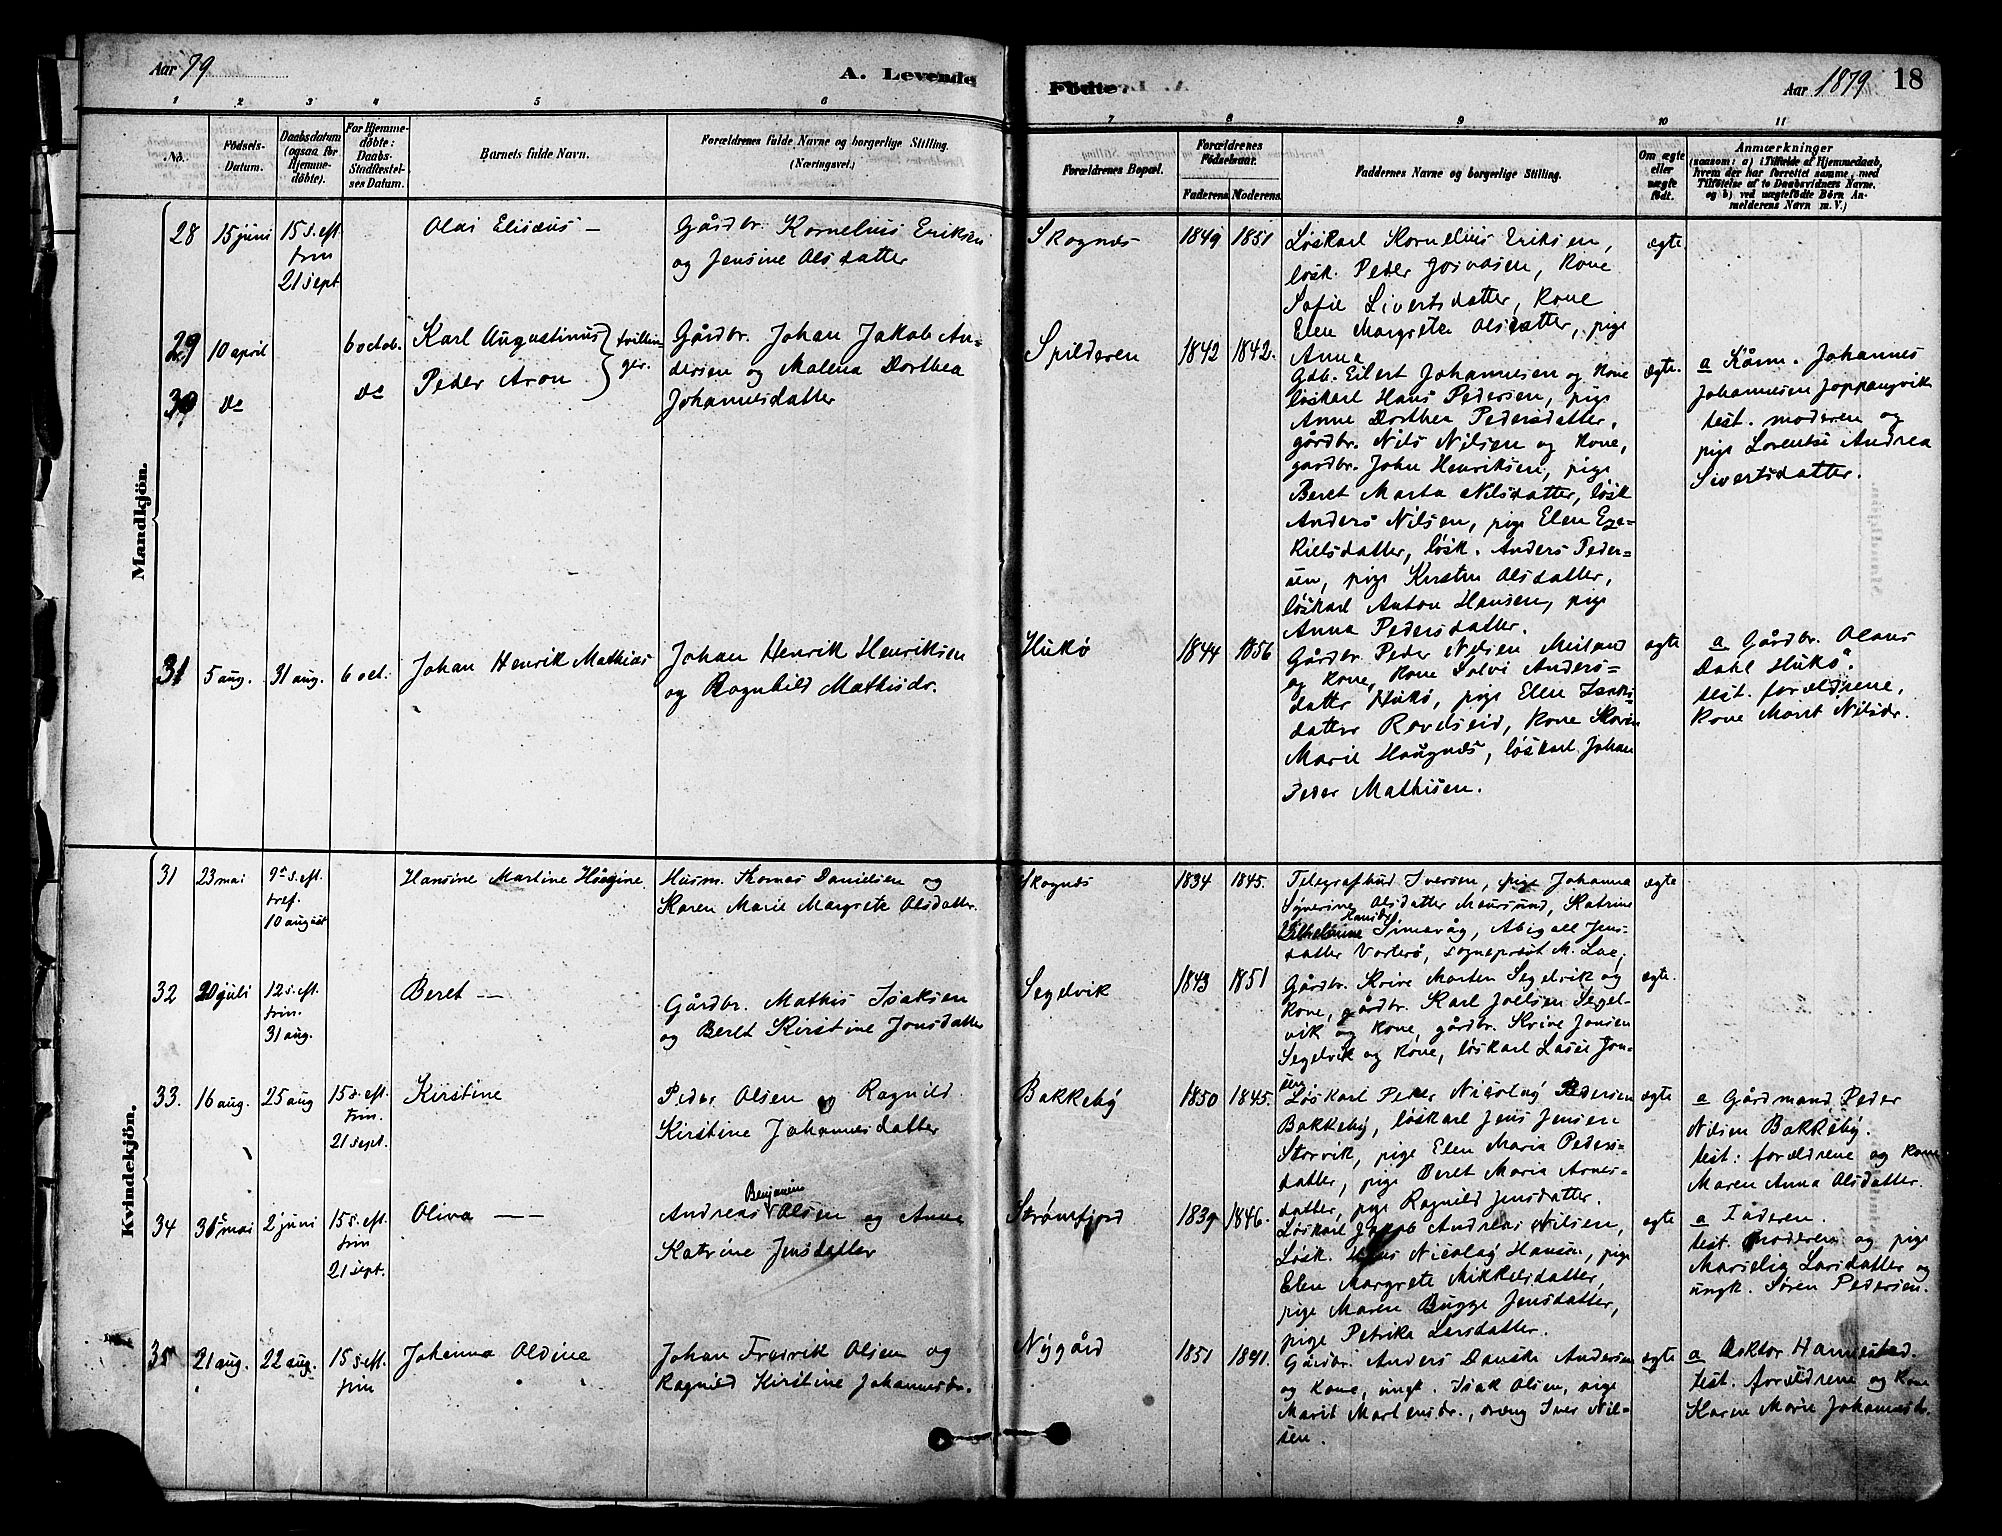 Aar 79
A. Levende
Födte.
Aar 1879
18
1 2 3 4 5 6 7 8 9 10 11
No.
Födsels-
Datum.
Daabsdatum
(ogsaa for
Hjemme-
döbte).
For Hjemme-
döbte:
Daabs-
Stadfæstel-
ses Datum.
Barnets fulde Navn.
Forældrenes fulde Navne og borgerlige Stilling.
(Næringsvei.)
Forældrenes Bopæl.
Forældrenes
Födselsaar.
Faderens. Moderens.
Faddernes Navne og borgerlige Stilling.
Om ægte
eller
uægte
födt.
Anmærkninger
(saasom: a) i Tilfælde af Hjemmedaab,
hvem der har forrettet samme, med
Tilföielse af to Daabsvidners Navne.
og b) ved uægtefödte Börn An-
melderens Navn m. V.)
Mandkjön.
28
15 juni
15 s. eft.
trin
21 sept
Olai Elisæus –
Gårdbr. Kornelius Eriksen
og Jensine Olsdatter
Skognæs
1849
1851
Løskarl Kornelius Eriksen,
løsk. Peder Josvasen, kone
Sofie Sivertsdatter, kone
Elen Margrete Olsdatter, pige
Anna
ægte
29
10 april
6 octob.
Karl Augustinus
tvillin-
ger.
Gårdbr. Johan Jakob An-
dersen og Malena Dorthea
Johannesdatter
30
do
do
Peder Aron
Spilderen
1842
1842.
Gdb. Eilert Johannesen og kone
løskarl Hans Pedersen, pige
Anne Dorthea Pedersdatter,
gårdbr. Nils Nilsen og kone,
gardbr. John Henriksen, pige
Beret Marta Nilsdatter, løsk
Anders Nilsen, pige Elen Eze-
kielsdatter, løsk. Anders Peder-
sen, pige Kirsten Olsdatter,
løskarl Anton Hansen, pige
Anna Pedersdatter.
ægte.
a Kårm. Johannes
Johannesen Joppangvik
test. moderen og
pige Lorentse Andrea
Sivertsdatter.
31
5 aug.
31 aug.
6 oct.
Johan Henrik Mathias
Johan Henrik Henriksen
og Ragnhild Mathisdr.
Hukø
1844
1856
Gårdbr. Peder Nilsen Meiland
og kone, kone Solvi Anders-
datter Hukø, pige Elen Isaks
datter Ravelseid, kone Karen
Marie Haugnæs, løskarl Johan
Peder Mathisen.
ægte
a Gårdbr. Olaus
Dahl Hukø.
test. forældrene,
kone Marit Nilsdr.
Kvindekjön.
31
23 mai
9de s. eft.
tref.
10 august
Hansine Martine
Husm. Thomas Danielsen og
Karen Marie Margrete Olsdatter.
Skognæs
1834
1845.
Telegrafbud Iversen, pige Johanna
Syverine Olsdatter Maursund, Katrine
Vilhelmine Hansdr. Simavåg, Abigael Jens-
datter Vorterø, sogneprest M. Lae,
ægte
32
20 juli
12 s. eft.
trin.
31 aug.
Beret –
Gårdbr. Mathis Isaksen
og Beret Kirstine Jonsdatter
Segelvik
1843
1851
Gårdbr. Skrive Morten Segelvik og
kone, gårdbr. Karl Joelsen Segel-
vik og kone, gårdbr. Krine Jonsen
Segelvik og kone, løskarl Lasse Jon-
sen
ægte.
33.
16 aug.
25 aug
15 s. eft.
trin.
21 sept.
Kirstine
Peder Olsen og Ragnild
Kirstine Johannesdatter
Bakkeby
1850
1845.
Løskarl Peder Nicolay Pedersen
Bakkeby, løskarl Jens Jensen
Storvik, pige Elen Maria Peders-
datter, pige Beret Maria Arnes-
datter, pige Ragnild Jensdatter.
ægte
a Gårdmand Peder
Nilsen Bakkeby.
test: forældrene og kone
Maren Anna Olsdatter.
34
mai
2 juni
15 s. eft.
trin
21 sept.
Oliva – –
Andreas Benjamin Olsen og Anna
Katrine Jensdatter
Strømfjord
1839
1846.
Løskarl Jakob Andreas Nilsen,
Løsk. Nicolay Hansen, pige
Elen Margrete Mikkelsdatter,
pige Maren Bugge Jensdatter,
pige Petrika Larsdatter.
ægte
a Faderen.
test. moderen og pige
Marselia Larsdatter og
ungk. Søren Pedersen.
35
21 aug.
22 aug.
15 s eft
trin
Johanna Oldine
Johan Fredrik Olsen og
Ragnild Kirstine Johannesdr.
Nygård
1851
1841.
Gårdbr. Anders Danske Andersen
og kone, ungk. Isak Olsen, pige
Marit Martensdr., dreng Iver Nil-
sen.
ægte
a Doktor Hannestad.
test. forældrene og kone
Karen Marie Johannesdr.